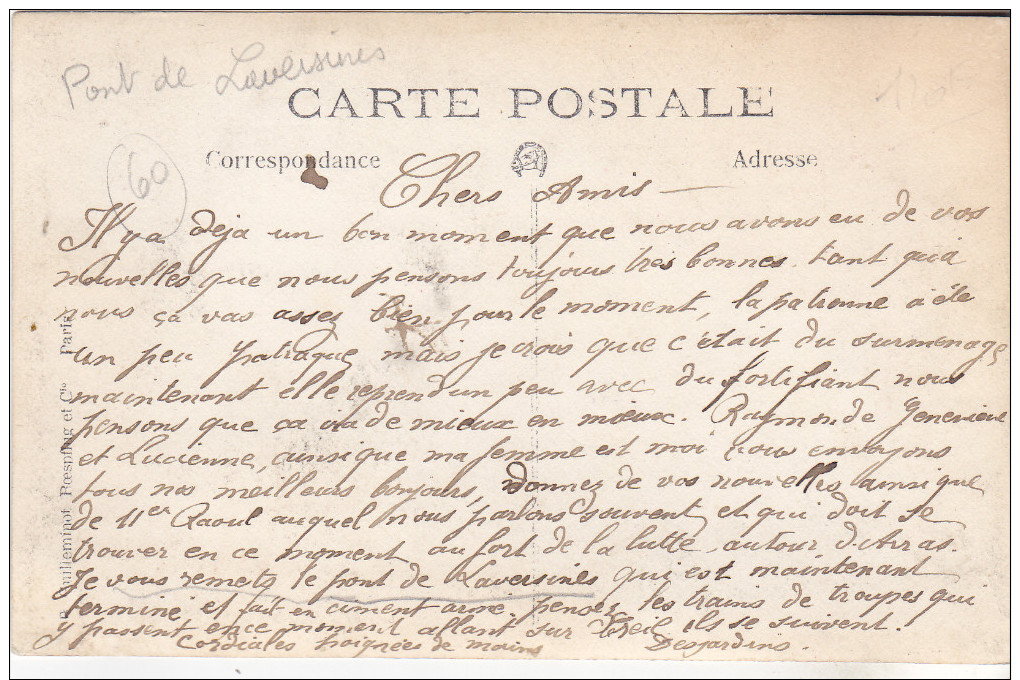 Pont de Laversines
CARTE POSTALE
Correspondance
Adresse
60
Chers Amis —
Il y a déja un bon moment que nous avons eu de vos
nouvelles que nous pensons toujours très bonnes. tant qu'à
nous ça vas assez bien pour le moment, la patronne à éte
un peu patraque, mais je crois que c'était du surmenage
maintenant elle reprend un peu avec du fortifiant nous
pensons que ça ira de mieux en mieux. Raymonde Genevieve
et Lucienne, ainsi que ma femme et moi vous envoyons
tous nos meilleurs bonjours, donnez de vos nouvelles ainsi que
de Mer Raoul auquel nous parlons souvent et qui doit se
trouver en ce moment au fort de la lutte autour d'Arras.
Je vous remets le pont de Laversines qui est maintenant
terminé et fait en ciment armé. pensez les trains de troupes qui
y passent en ce moment allant sur Creil ils se suivent.
Cordiales poignées de mains Desjardins.
Guilleminot Bœspflug et Cie Paris